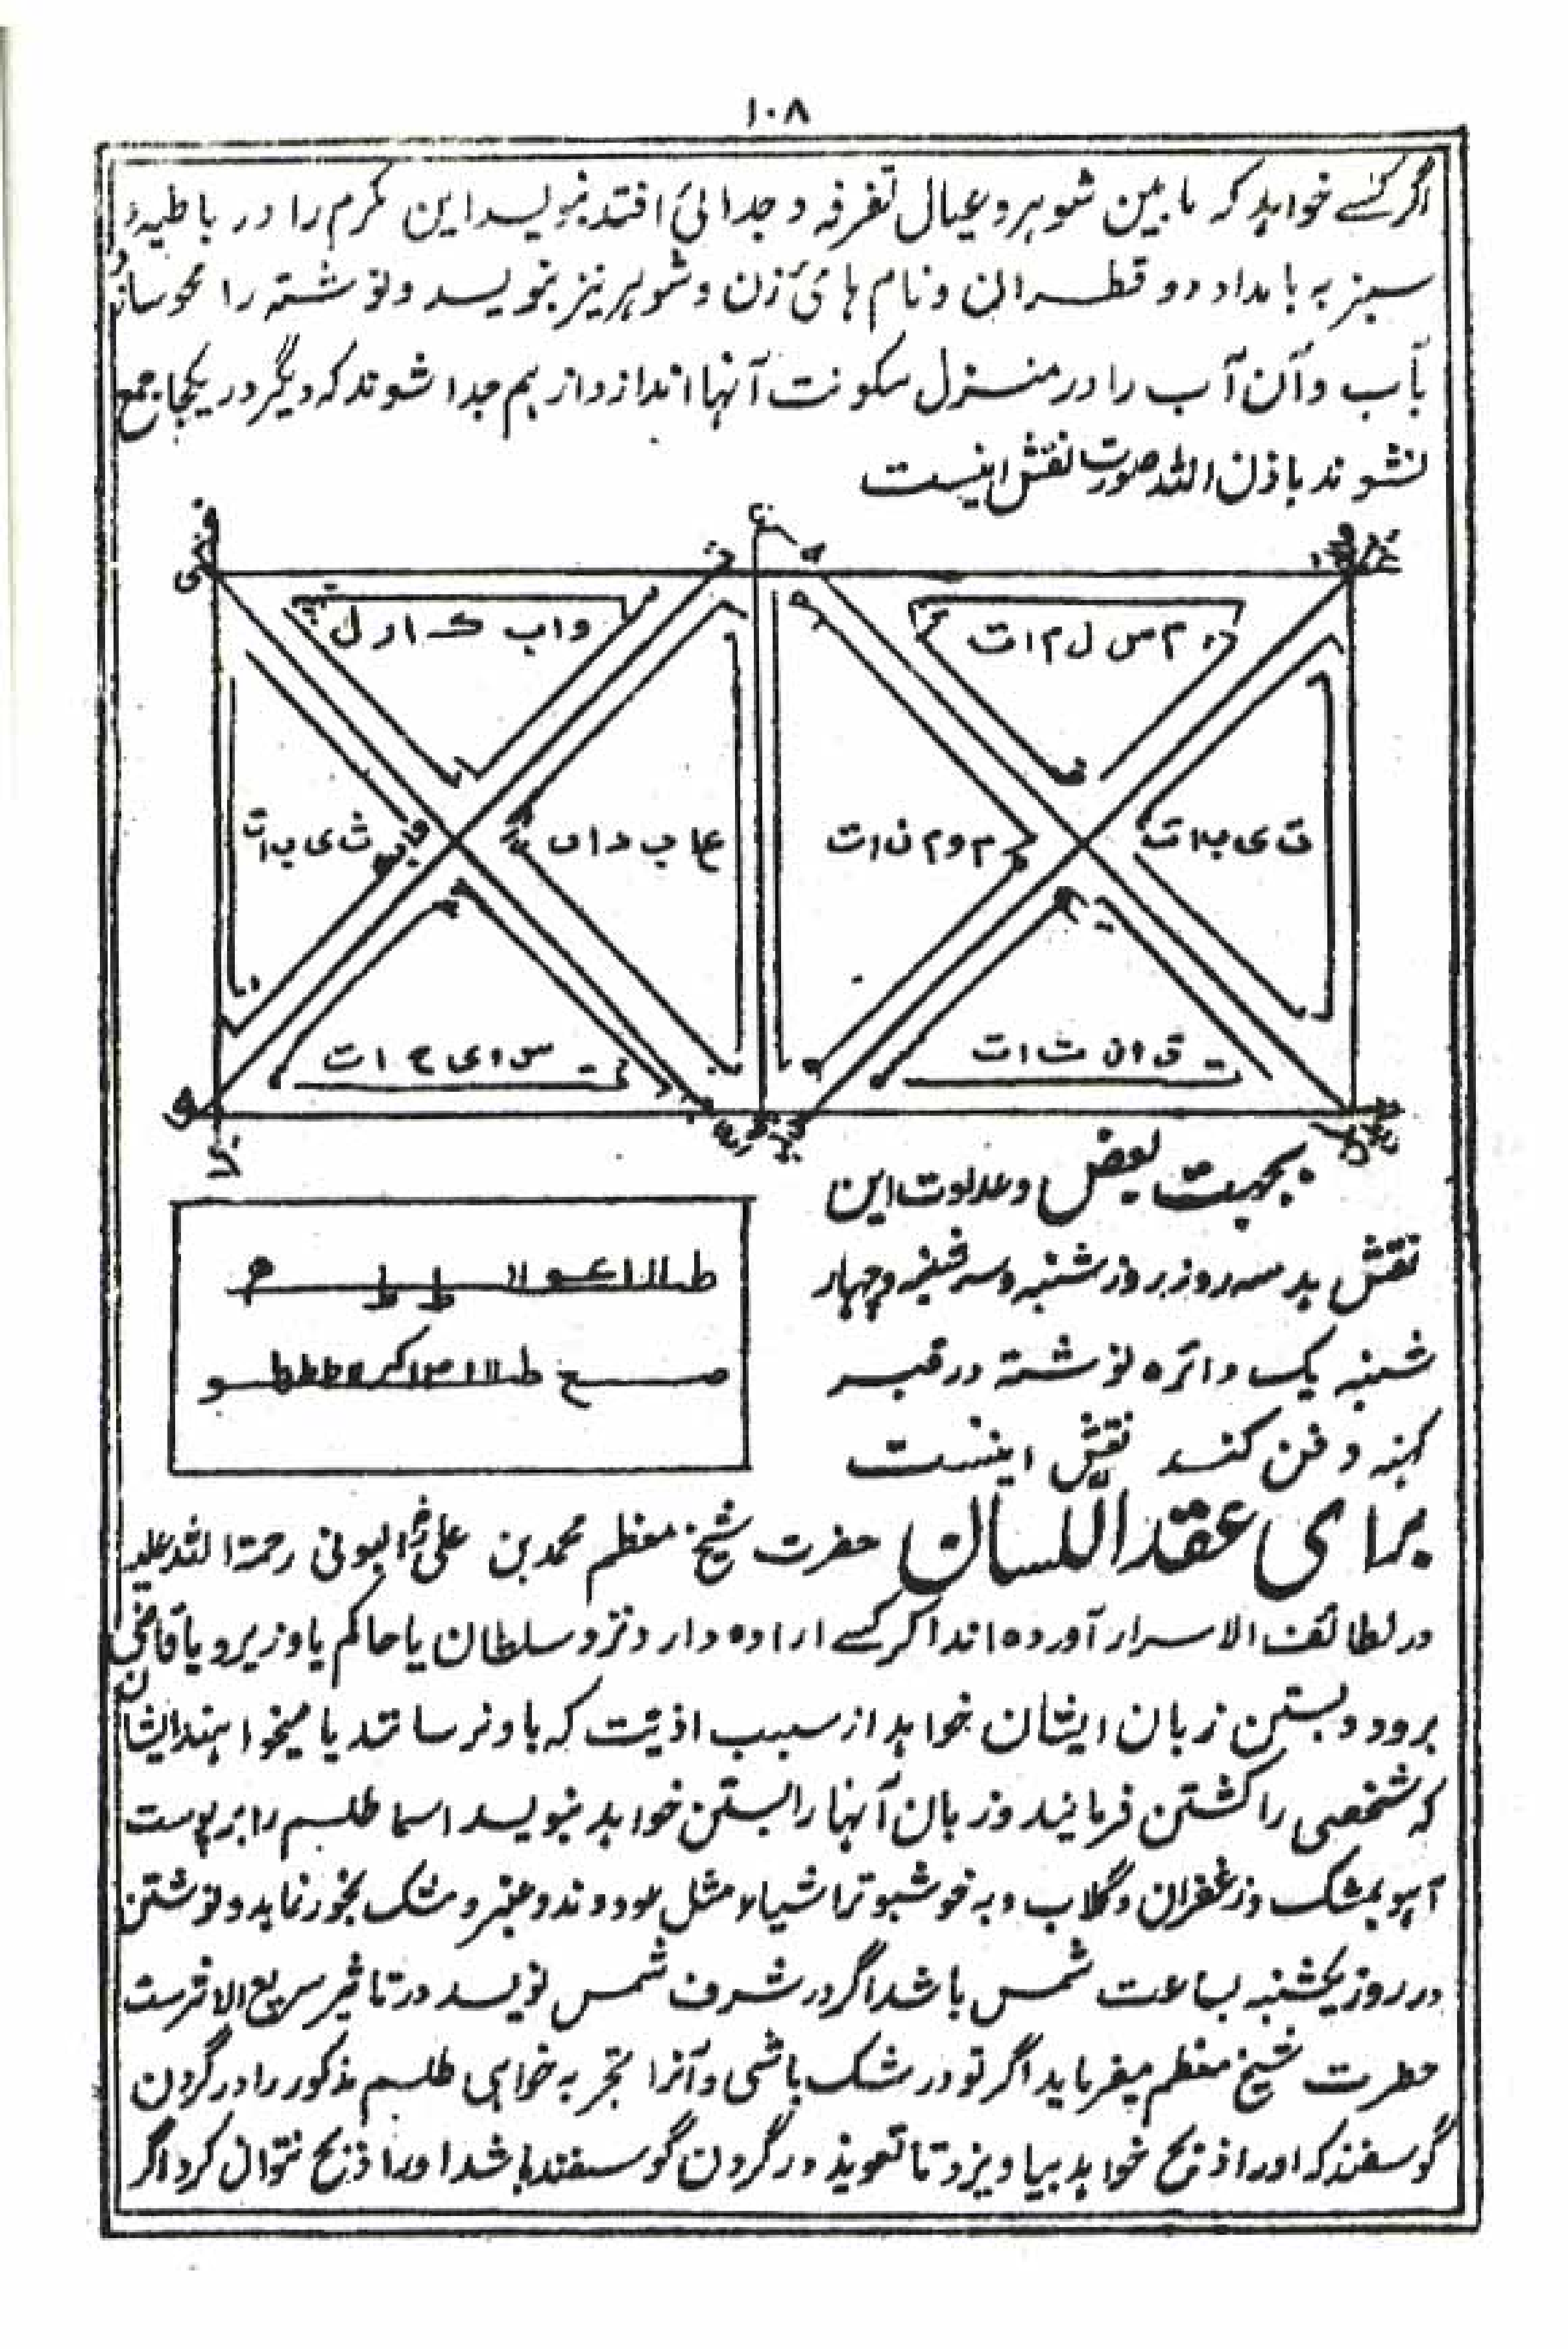 ۱۰۸
اگر کسے خواہد کہ مابین شوہر و عیال تفرقہ و جدائی افتد بنویسد این مکرم را در باطیۂ
سبز بہ با مداد دو قطران و نام ہائ زن و شوہر نیز بنویسد و نوشتہ را محو ساند
بآب و آن آب را در منزل سکونت آنہا اندازد از ہم جدا شوند کہ دیگر در یکجا جمع
نشوند باذن اللہ صورت نقش اینست
و ا ب ک ا ر ل
م س ل م ا ت
ث ی ب ا ت
ع ا ب د ا ت
م و م ن ا ت
ت ی ب ا ت
س ا ی ح ا ت
ق ا ن ت ا ت
بجہت بعض وعداوت این
نقش بد سہ روز بروز شنبہ وسہ شنبہ وچہار
شنبہ یک دائرہ نوشتہ در قبر
کہنہ دفن کند نقش اینست
برای عقد اللسان حضرت شیخ معظم محمد بن علی البونی رحمۃ اللہ علیہ
در لطائف الاسرار آوردہ اند اگر کسے ارادہ دارد نزد سلطان یا حاکم یا وزیر و یا قاضی
برود و بستن زبان ایشان خواہد از سبب اذیت کہ باو نرسانند یا میخواہند ایشان
کہ شخصی را کشتن فرمایند و زبان آنہا را بستن خواہد بنویسد اسما طلسم را بر پوست
آہو بمشک و زعفران و گلاب و بہ خوشبو تر اشیاء مثل عود و ند و عنبر و مشک بخور نماید و نوشتن
در روز یکشنبہ بساعت شمس باشد اگر در شرف شمس نویسد در تاثیر سریع الاثرست
حطرت شیخ معظم میفرماید اگر تو در شک باشی و آنرا تجربہ خواہی طلسم مذکور را در گردن
گوسفند کہ اورا ذبح خواہد بیاویزد تا تعویذ در گردن گوسفند باشد اورا ذبح نتوان کرد اگر